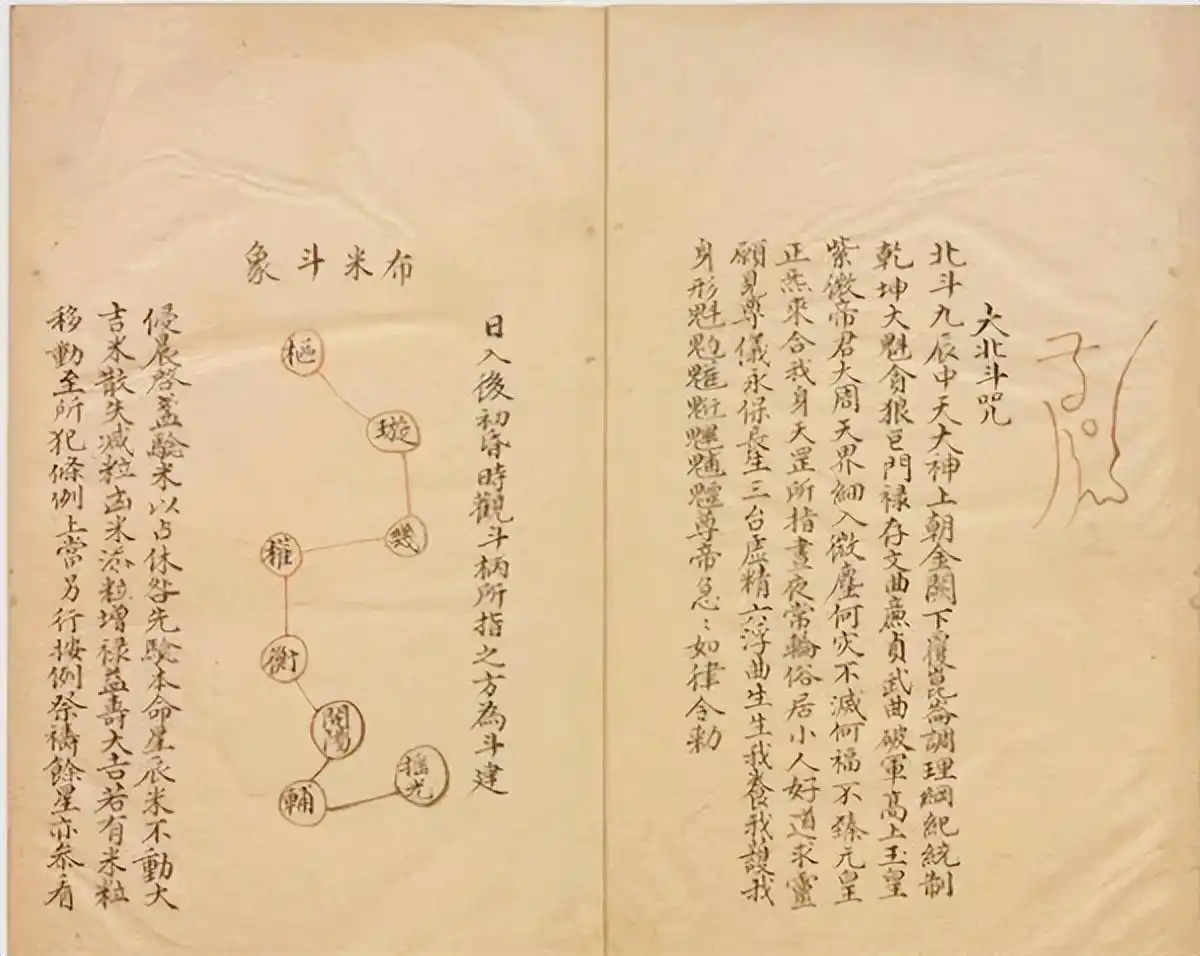 大北斗咒
北斗九辰中天大神上朝金闕下覆崑崙調理綱紀統制
乾坤大魁貪狼巨門禄存文曲廉貞武曲破軍髙上玉皇
紫微帝君大周天界細入微塵何灾不滅何福不臻元皇
正炁來合我身天罡所指晝夜常輪俗居小人好道求靈
願見尊儀永保長生三台虚精六浮曲生生我養我護我
身形魁尊帝急〻如律令勅
日入後初昏時觀斗柄所指之方為斗建
布米斗象
樞
璇
璣
權
衡
開陽
輔
摇光
侵晨啓蓋驗米以占休咎先驗本命星辰米不動大
吉米散失减粒凶米添粒增禄益壽大吉若有米粒
移動至所犯條例上當另行按例祭禱餘星亦叅看